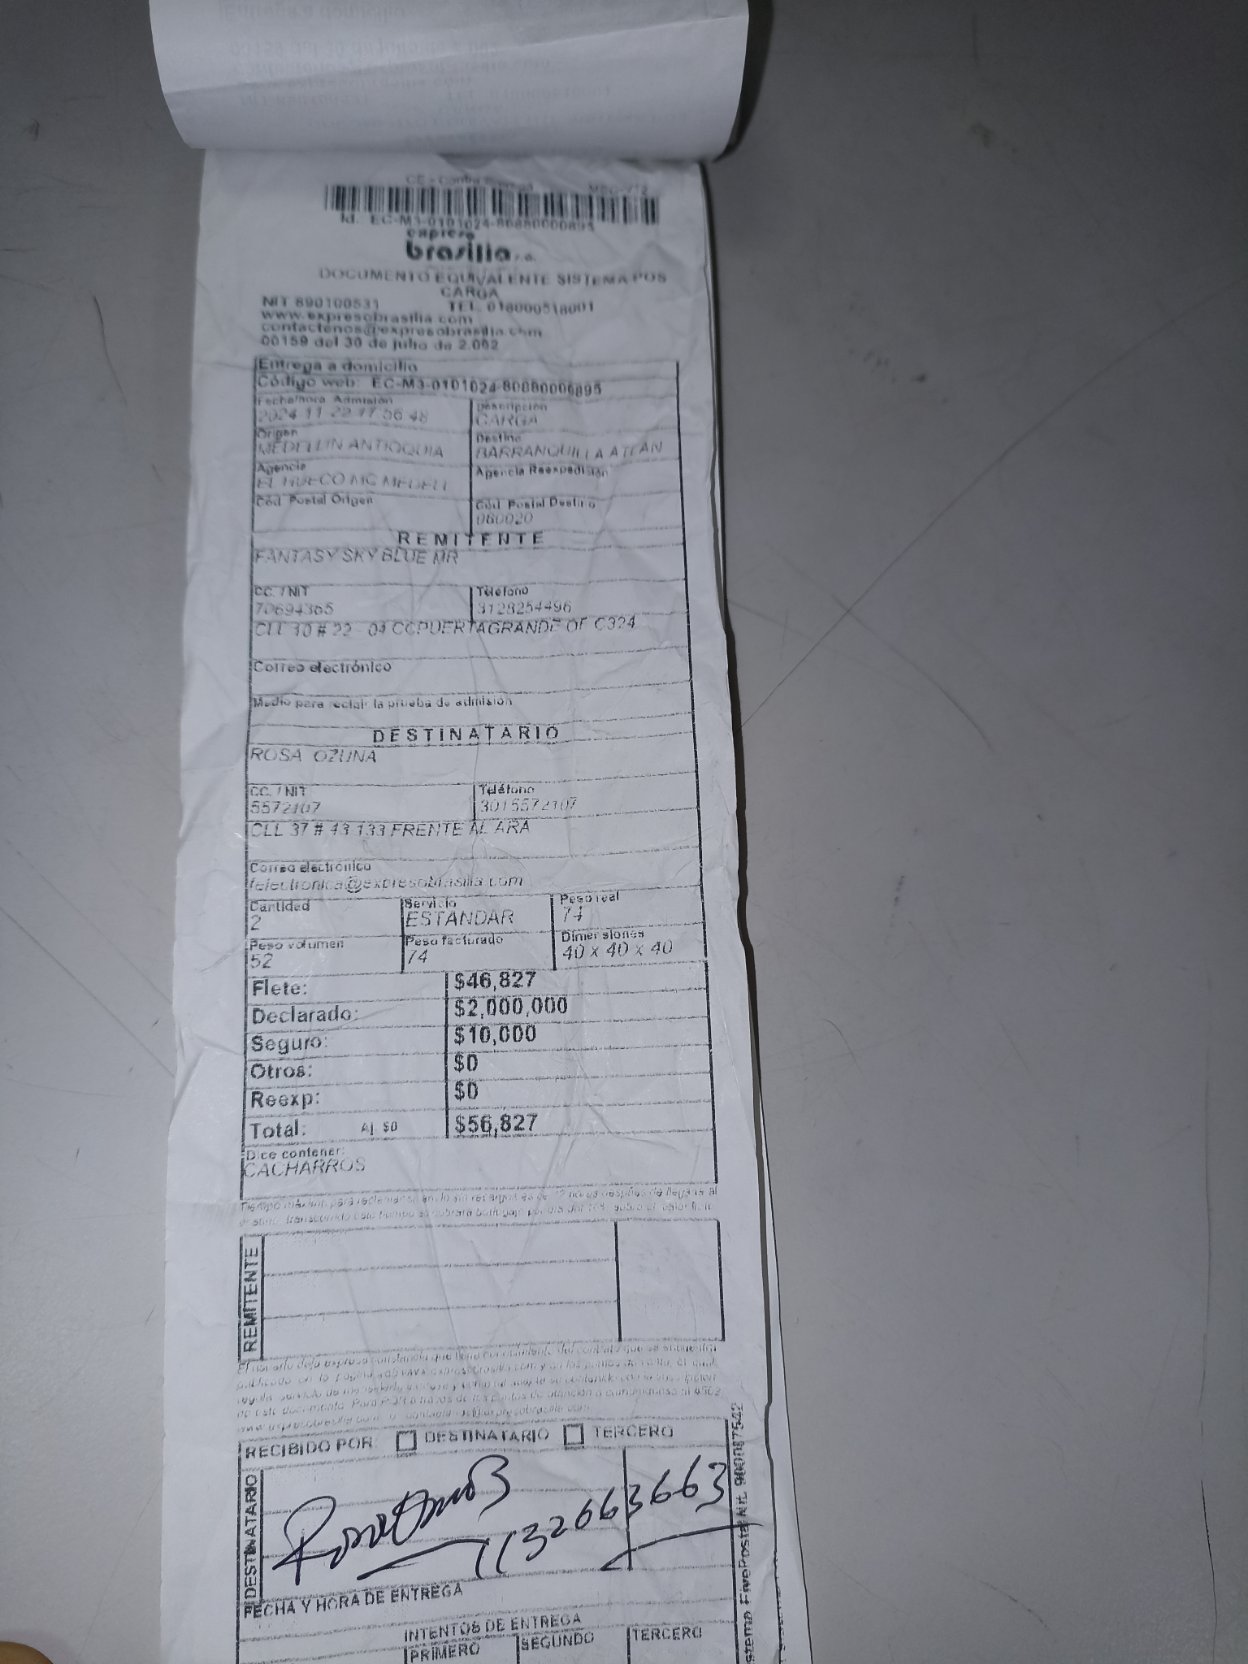 CE - Contra Entrega
Id. EC-M3-0101024-80880006895
expreso
brasilia s.a.
DOCUMENTO EQUIVALENTE SISTEMA POS
CARGA
NIT 890100531 TEL. 018000518001
www.expresobrasilia.com
contactenos@expresobrasilia.com
00159 del 30 de julio de 2.002
Entrega a domicilio
Código web: EC-M3-0101024-80880006895
Fecha/hora Admisión Descripción
2024-11-22 17:56:48 CARGA
Origen Destino
MEDELLIN ANTIOQUIA BARRANQUILLA ATLAN
Agencia Agencia Reexpedición
EL HUECO MC MEDELL
Cód. Postal Origen Cód. Postal Destino
080020
REMITENTE
FANTASY SKY BLUE MR
CC. / NIT Teléfono
70694365 3128254496
CLL 30 # 22 - 04 CCPUERTAGRANDE OF C324
Correo electrónico
Medio para recibir la prueba de admisión
DESTINATARIO
ROSA OZUNA
CC. / NIT Teléfono
5572107 3015572107
CLL 37 # 43 133 FRENTE AL ARA
Correo electrónico
felectronica@expresobrasilia.com
Cantidad Servicio Peso real
2 ESTANDAR 74
Peso volumen Peso facturado Dimensiones
52 74 40 x 40 x 40
Flete: $46,827
Declarado: $2,000,000
Seguro: $10,000
Otros: $0
Reexp: $0
Total: Aj $0 $56,827
Dice contener:
CACHARROS
REMITENTE
RECIBIDO POR: DESTINATARIO TERCERO
DESTINATARIO
1132663663
FECHA Y HORA DE ENTREGA
INTENTOS DE ENTREGA
PRIMERO SEGUNDO TERCERO